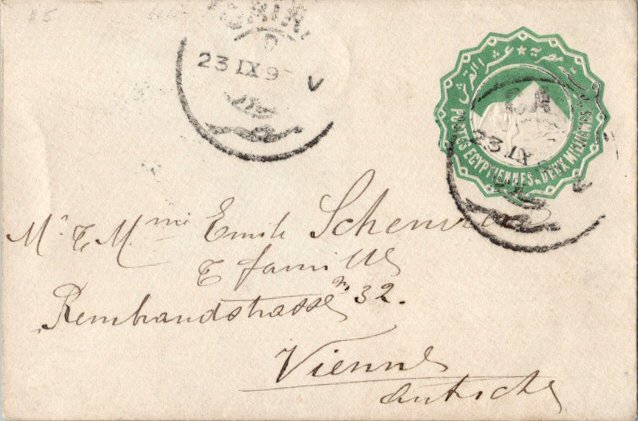 CAIR
23 IX 9 V
POSTES EGYPTIENNES. DEUX MILLIEMES
23 IX
Mr & Mme Emile
& famille
Rembrandstrasse No 32.
Vienne
Autriche